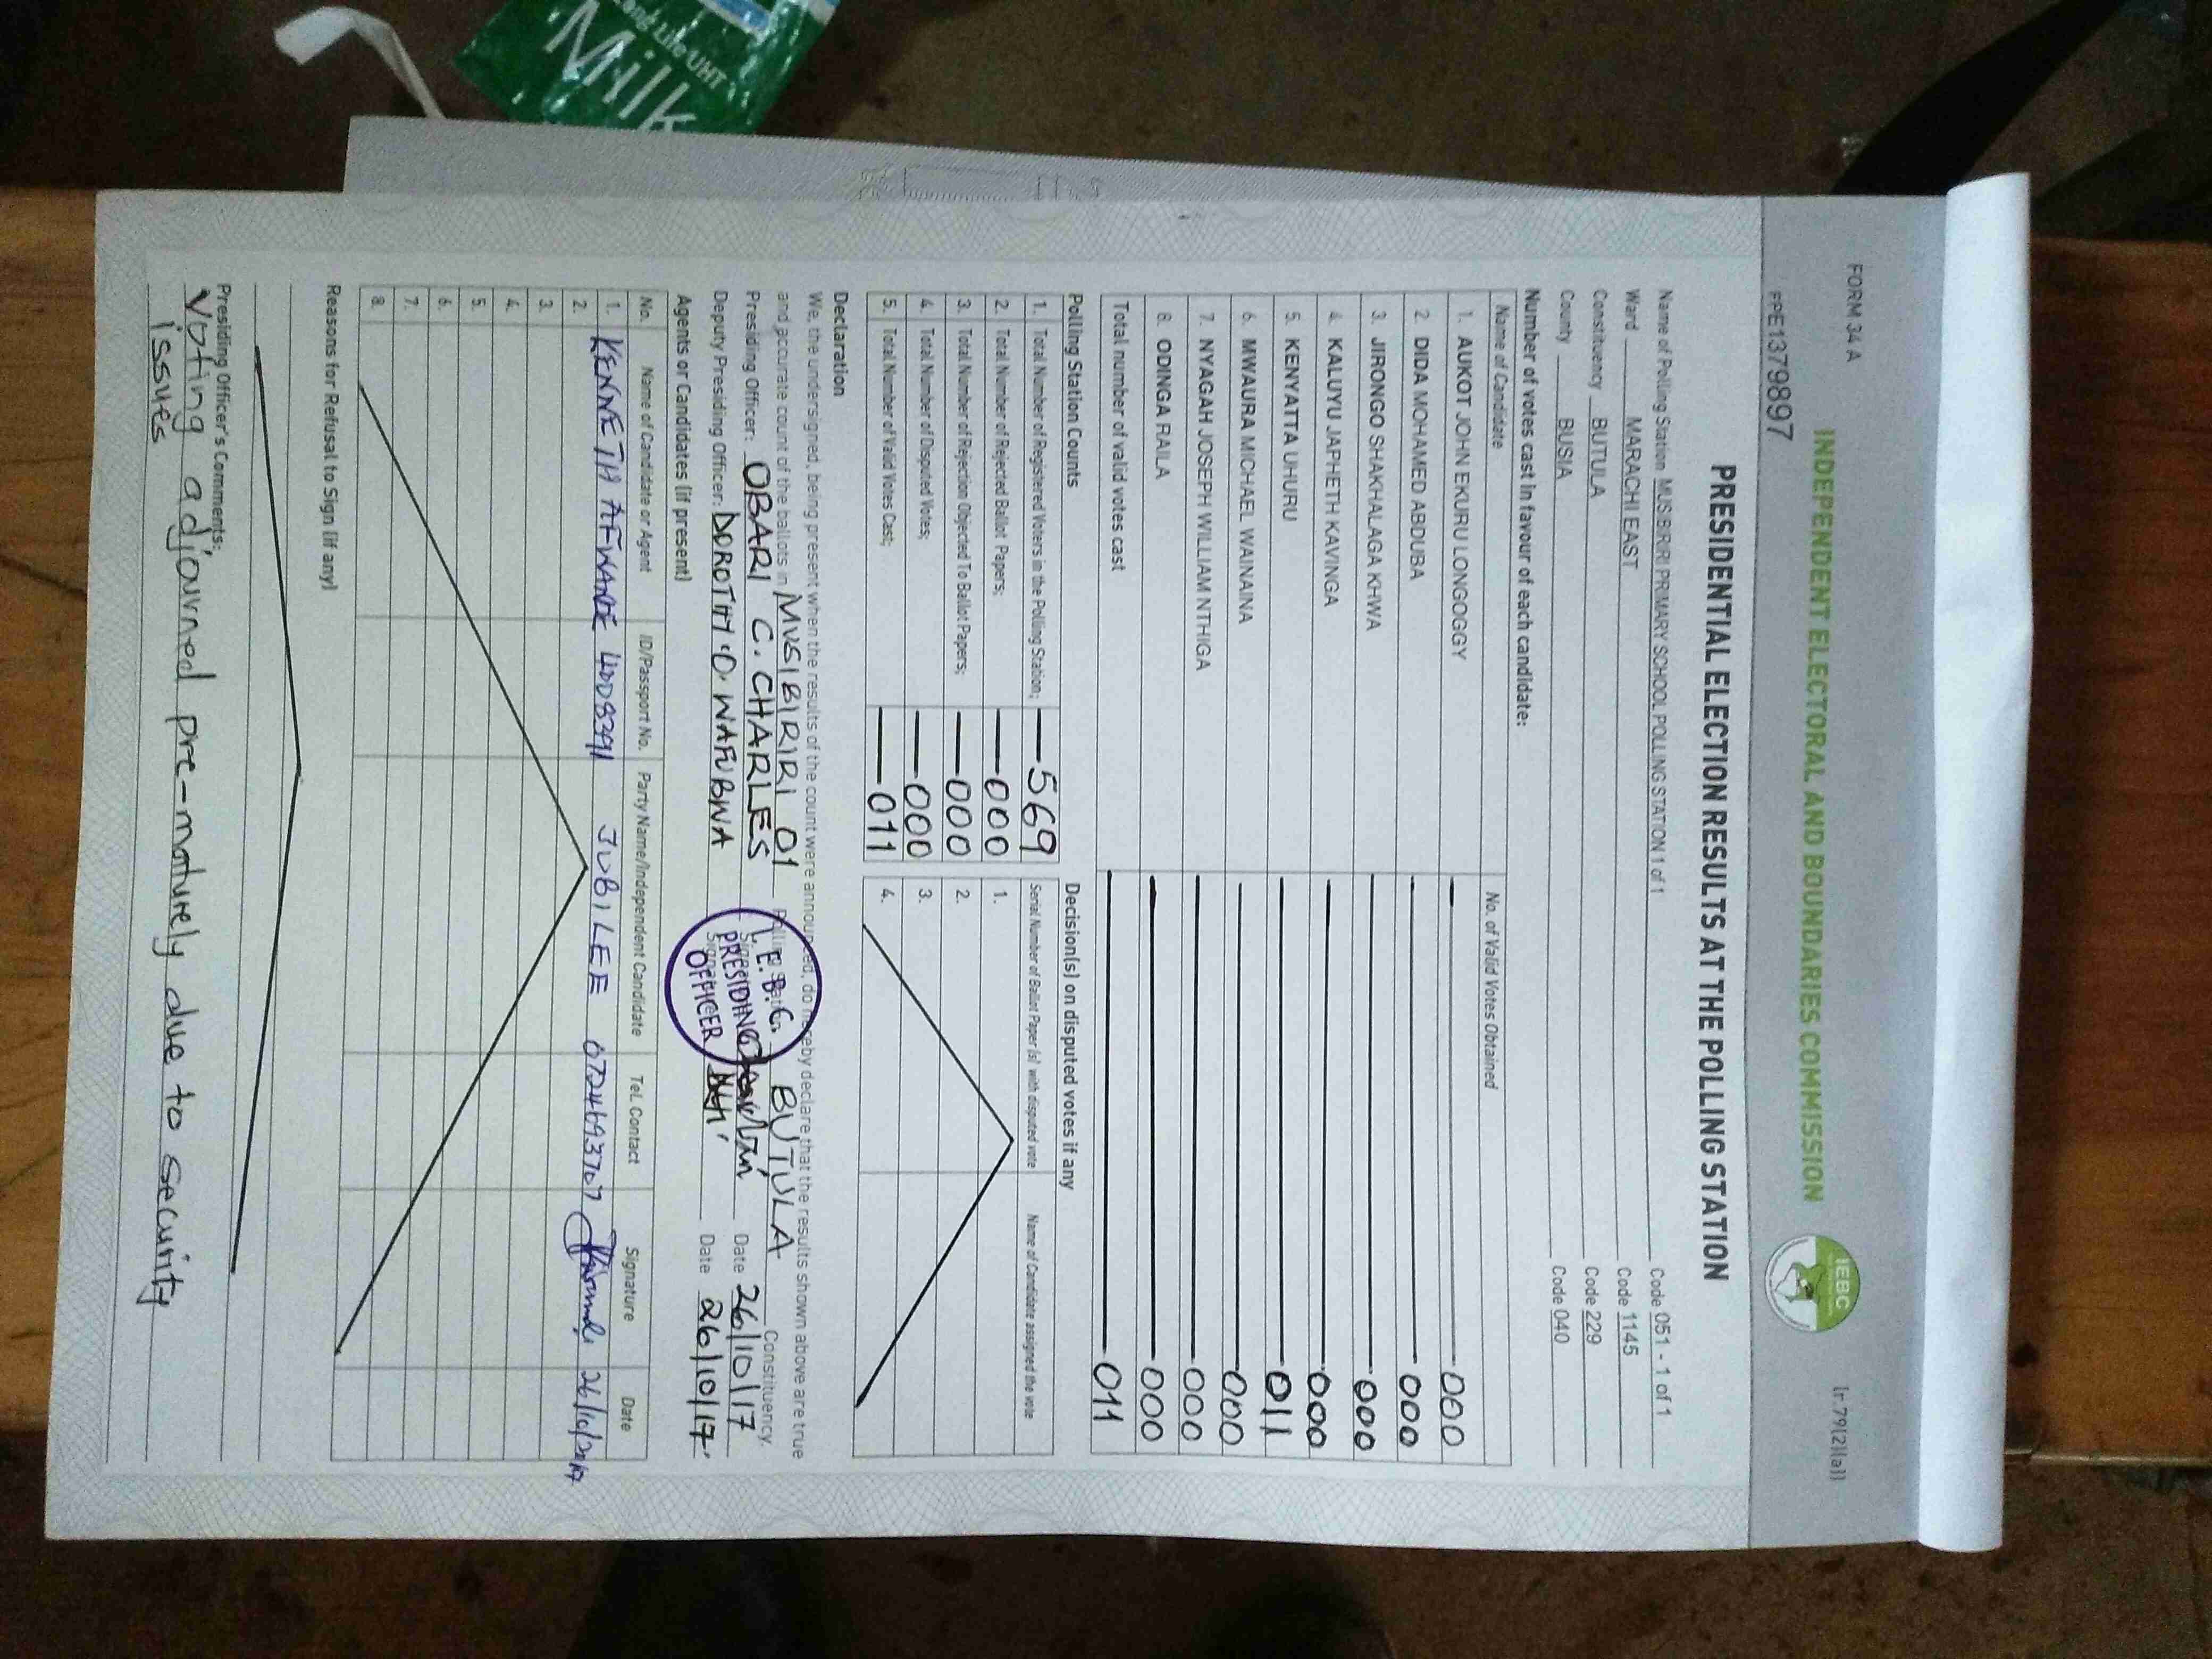 and Life UHT
Milk
FORM 34 A
[r.79(2)(a)]
INDEPENDENT ELECTORAL AND BOUNDARIES COMMISSION
IEBC
PPE1379897
PRESIDENTIAL ELECTION RESULTS AT THE POLLING STATION
Name of Polling Station MUSIBIRIRI PRIMARY SCHOOL POLLING STATION 1 of 1 Code 051 - 1 of 1
Ward MARACHI EAST Code 1145
Constituency BUTULA Code 229
County BUSIA Code 040
Number of votes cast in favour of each candidate:
Name of Candidate No. of Valid Votes Obtained
1. AUKOT JOHN EKURU LONGOGGY 000
2. DIDA MOHAMED ABDUBA 000
3. JIRONGO SHAKHALAGA KHWA 000
4. KALUYU JAPHETH KAVINGA 000
5. KENYATTA UHURU 011
6. MWAURA MICHAEL WAINAINA 000
7. NYAGAH JOSEPH WILLIAM NTHIGA 000
8. ODINGA RAILA 000
Total number of valid votes cast 011
Polling Station Counts
1. Total Number of Registered Voters in the Polling Station; 569
2. Total Number of Rejected Ballot Papers; 000
3. Total Number of Rejection Objected To Ballot Papers; 000
4. Total Number of Disputed Votes; 000
5. Total Number of Valid Votes Cast; 011
Decision(s) on disputed votes if any
Serial Number of Ballot Paper (s) with disputed vote Name of Candidate assigned the vote
1.
2.
3.
4.
Declaration
We, the undersigned, being present when the results of the count were announced, do hereby declare that the results shown above are true
and accurate count of the ballots in MUSIBIRIRI 01 Polling Station BUTULA Constituency.
Presiding Officer: OBARI C. CHARLES Date 26/10/17
Deputy Presiding Officer: DOROTHY O. WAFUBWA Date 26/10/17
I.E.B.C.
PRESIDING
OFFICER
Agents or Candidates (if present)
No. Name of Candidate or Agent ID/Passport No. Party Name/Independent Candidate Tel. Contact Signature Date
1. KENNETH AFWANDE JUBILEE 26/10/2017
2.
3.
4.
5.
6.
7.
8.
Reasons for Refusal to Sign (if any)
Presiding Officer's Comments:
Voting adjourned pre-maturely due to security
issues